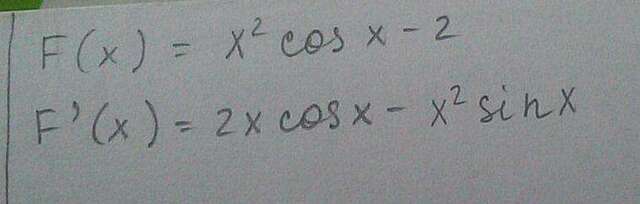 F(x) = x² cos x - 2
F'(x) = 2x cos x - x² sin x